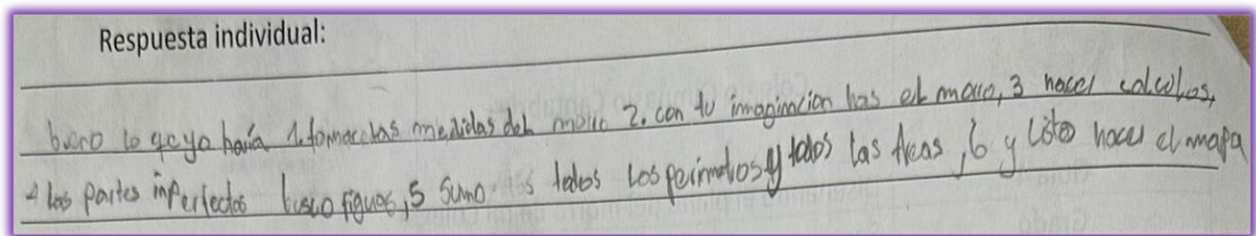 Respuesta individual:
bueno lo q e yo haría 1. tomar las medidas del morro 2. con tu imaginacion has el morro, 3 hacer calculos,
4 las partes inperfectas busco figuras, 5 Sumo todos los perimetros y todos las Areas, 6 y listo hacer el mapa